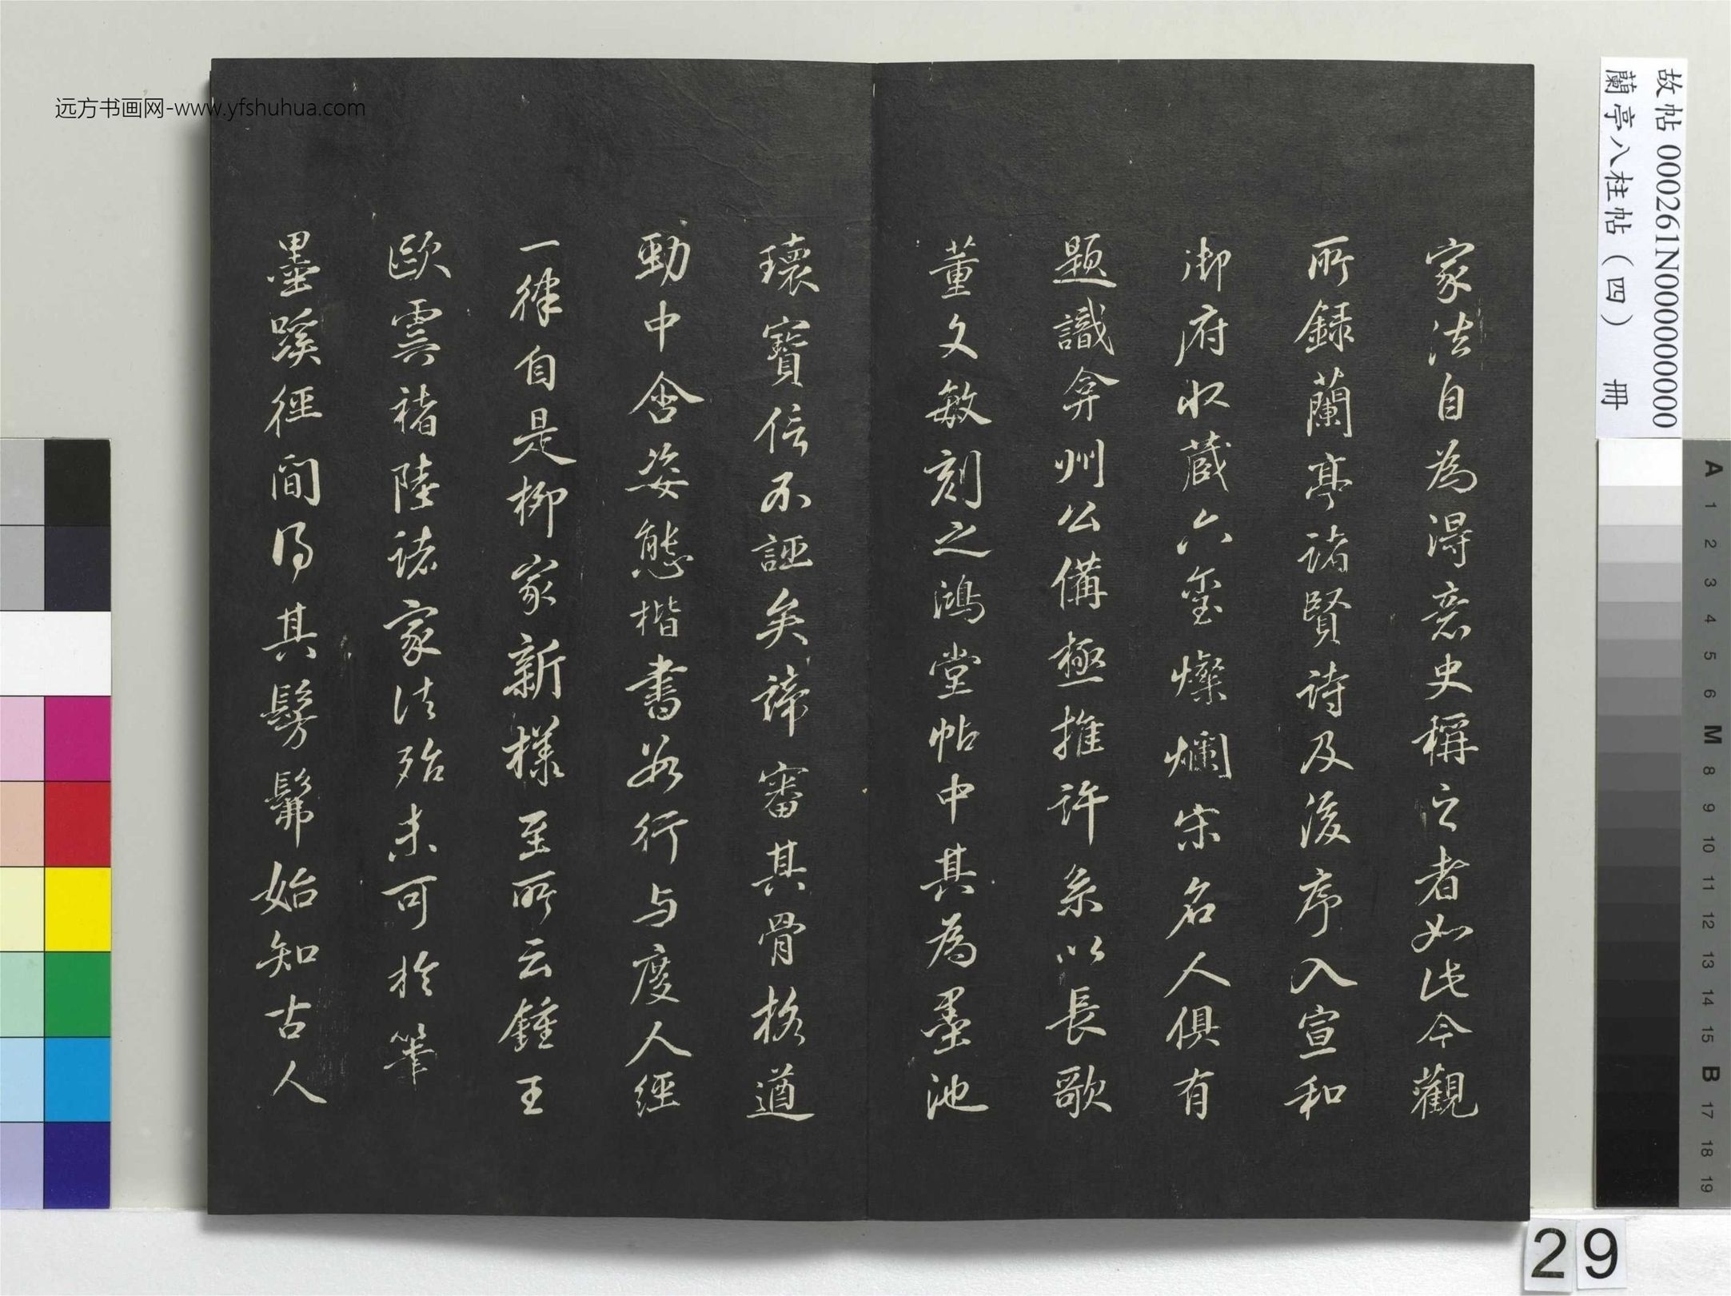 家法自為得意史稱之者如此今觀
所錄蘭亭諸賢詩及後序入宣和
御府收藏六璽燦爛宋名人俱有
題識弇州公備極推許系以長歌
董文敏刻之鴻堂帖中其為墨池
瓌寶信不誣矣諦審其骨格遒
勁中含姿態楷書如行与度人經
一律自是柳家新樣至所云鍾王
歐虞褚陸諸家法殆未可於筆
墨蹊徑間得其髣髴始知古人
故帖 000261N000000000
蘭亭八柱帖（四） 冊
远方书画网-www.yfshuhua.com
A
1
2
3
4
5
6
M
8
9
10
11
12
13
14
15
B
17
18
19
29